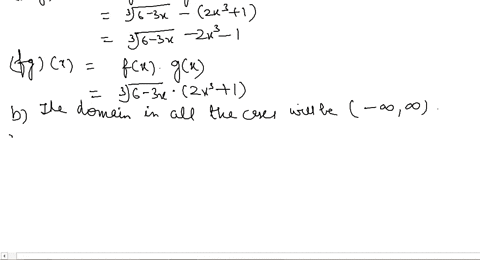 = ∛6-3x - (2x³+1)
= ∛6-3x - 2x³ - 1
(fg)(x) = f(x). g(x)
= ∛6-3x · (2x³+1)
b) The domain in all the cases will be (-∞,∞).